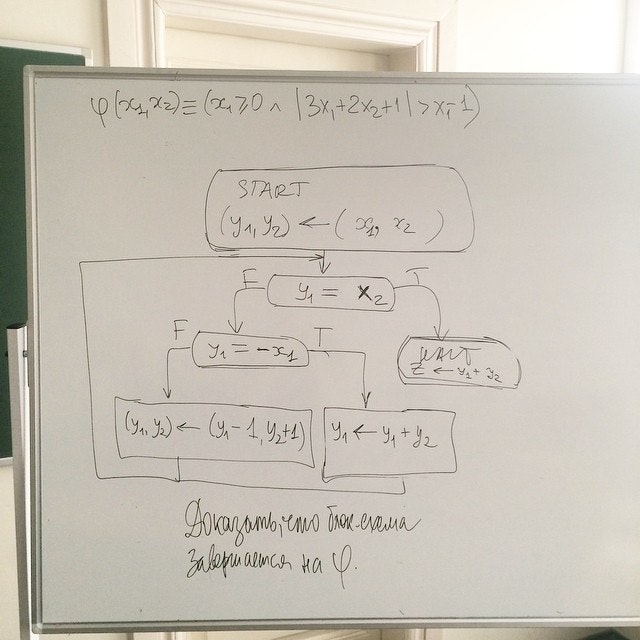 φ(x₁,x₂)≡(x₁⩾0 ∧ |3x₁+2x₂+1|>x₁-1)
START
(y₁,y₂) ← (x₁, x₂)
F
T
y₁ = x₂
F
T
y₁ = -x₁
HALT
z ← y₁+y₂
(y₁,y₂) ← (y₁-1, y₂+1)
y₁ ← y₁+y₂
Доказать, что блок-схема
завершается на φ.